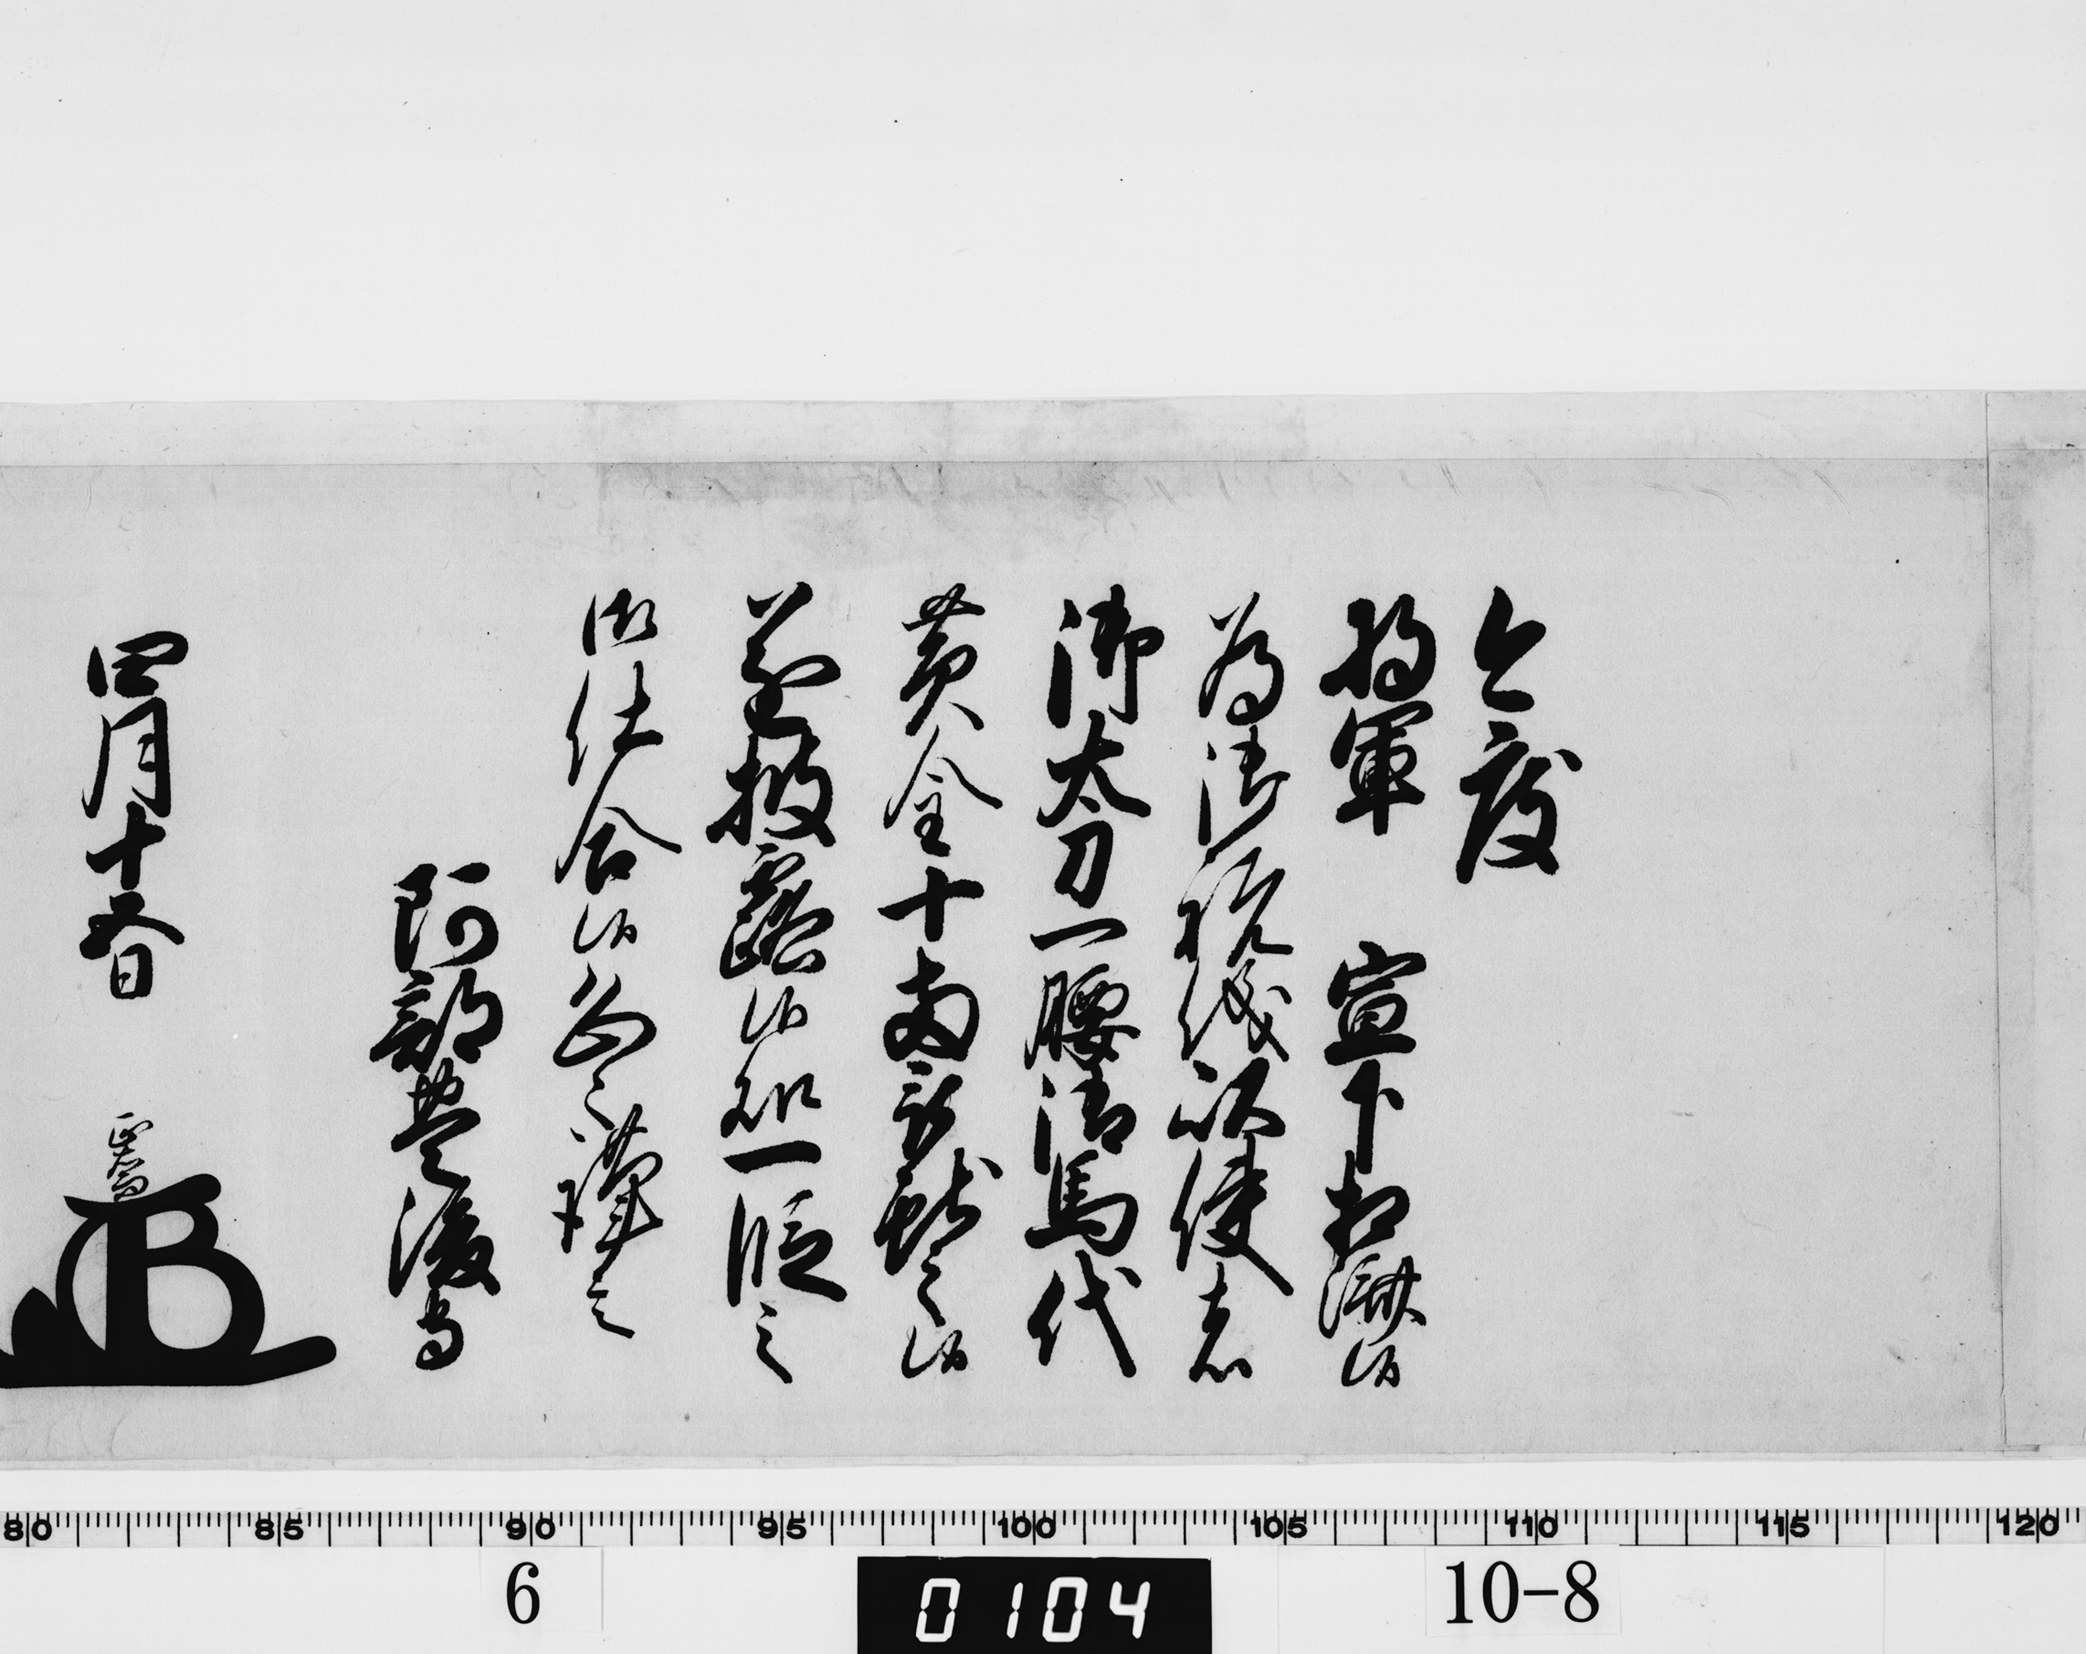 今度
将軍　宣下相済候
為御祝儀以使者
御太刀一腰御馬代
黄金十両被献之候
遂披露候処一段之
御仕合候恐々謹言
阿部豊後守
四月十五日　正喬
80 85 90 95 100 105 110 115 120
6 0104 10-8